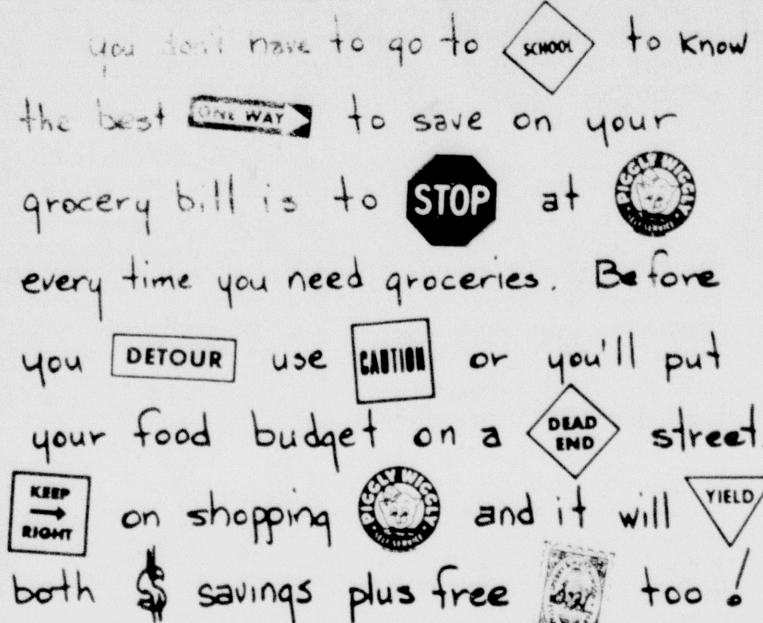 you don't have to go to SCHOOL to know
the best ONE WAY to save on your
grocery bill is to STOP at PIGGLY WIGGLY SELF SERVICE
every time you need groceries. Before
you DETOUR use CAUTION or you'll put
your food budget on a DEAD END street.
KEEP RIGHT on shopping PIGGLY WIGGLY SELF SERVICE and it will YIELD
both $ savings plus free S&H too!